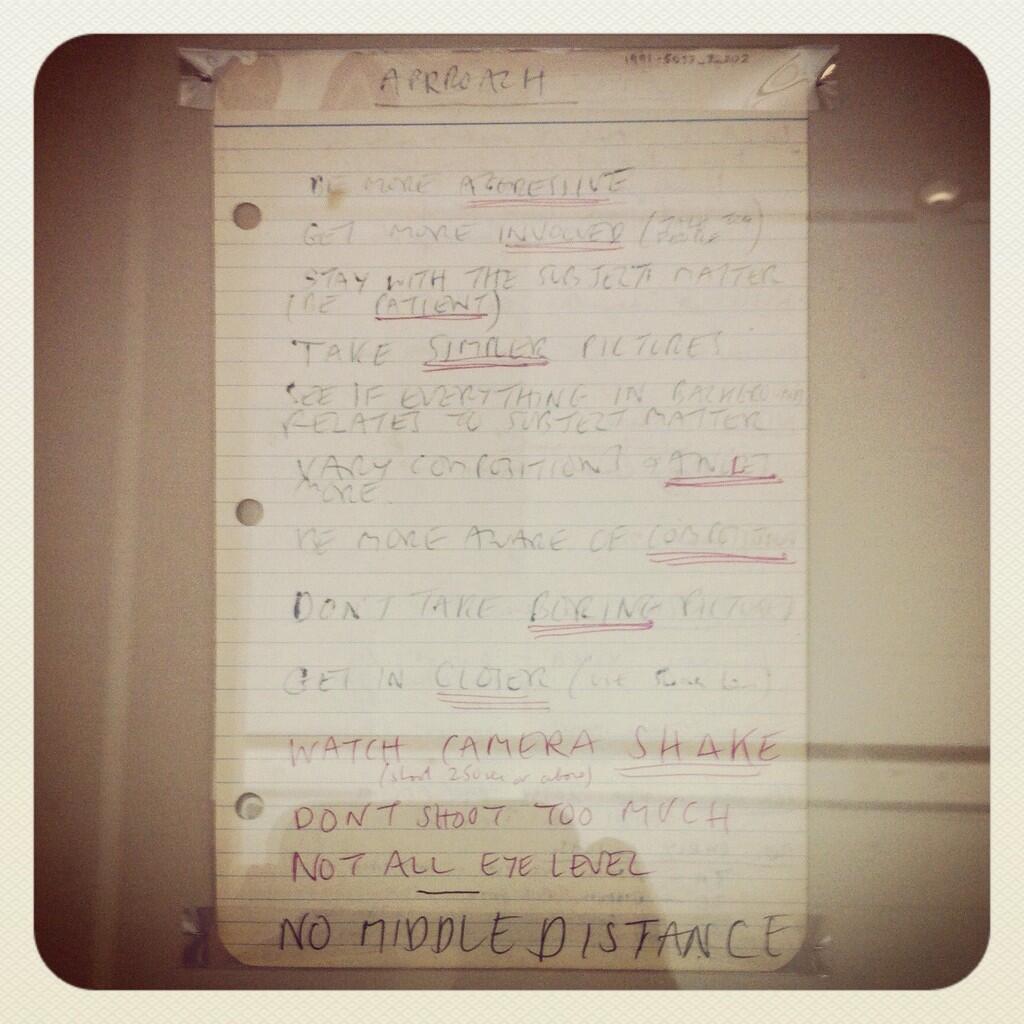 APPROACH
BE MORE AGGRESSIVE
GET MORE INVOLVED (TALK TO PEOPLE)
STAY WITH THE SUBJECT MATTER
(BE PATIENT)
TAKE SIMPLER PICTURES
SEE IF EVERYTHING IN BACKGROUND
RELATES TO SUBJECT MATTER
VARY COMPOSITIONS + ANGLES
MORE
BE MORE AWARE OF COMPOSITION
DON'T TAKE BORING PICTURES
GET IN CLOSER (use 50mm lens)
WATCH CAMERA SHAKE
(shoot 250sec or above)
DON'T SHOOT TOO MUCH
NOT ALL EYE LEVEL
NO MIDDLE DISTANCE